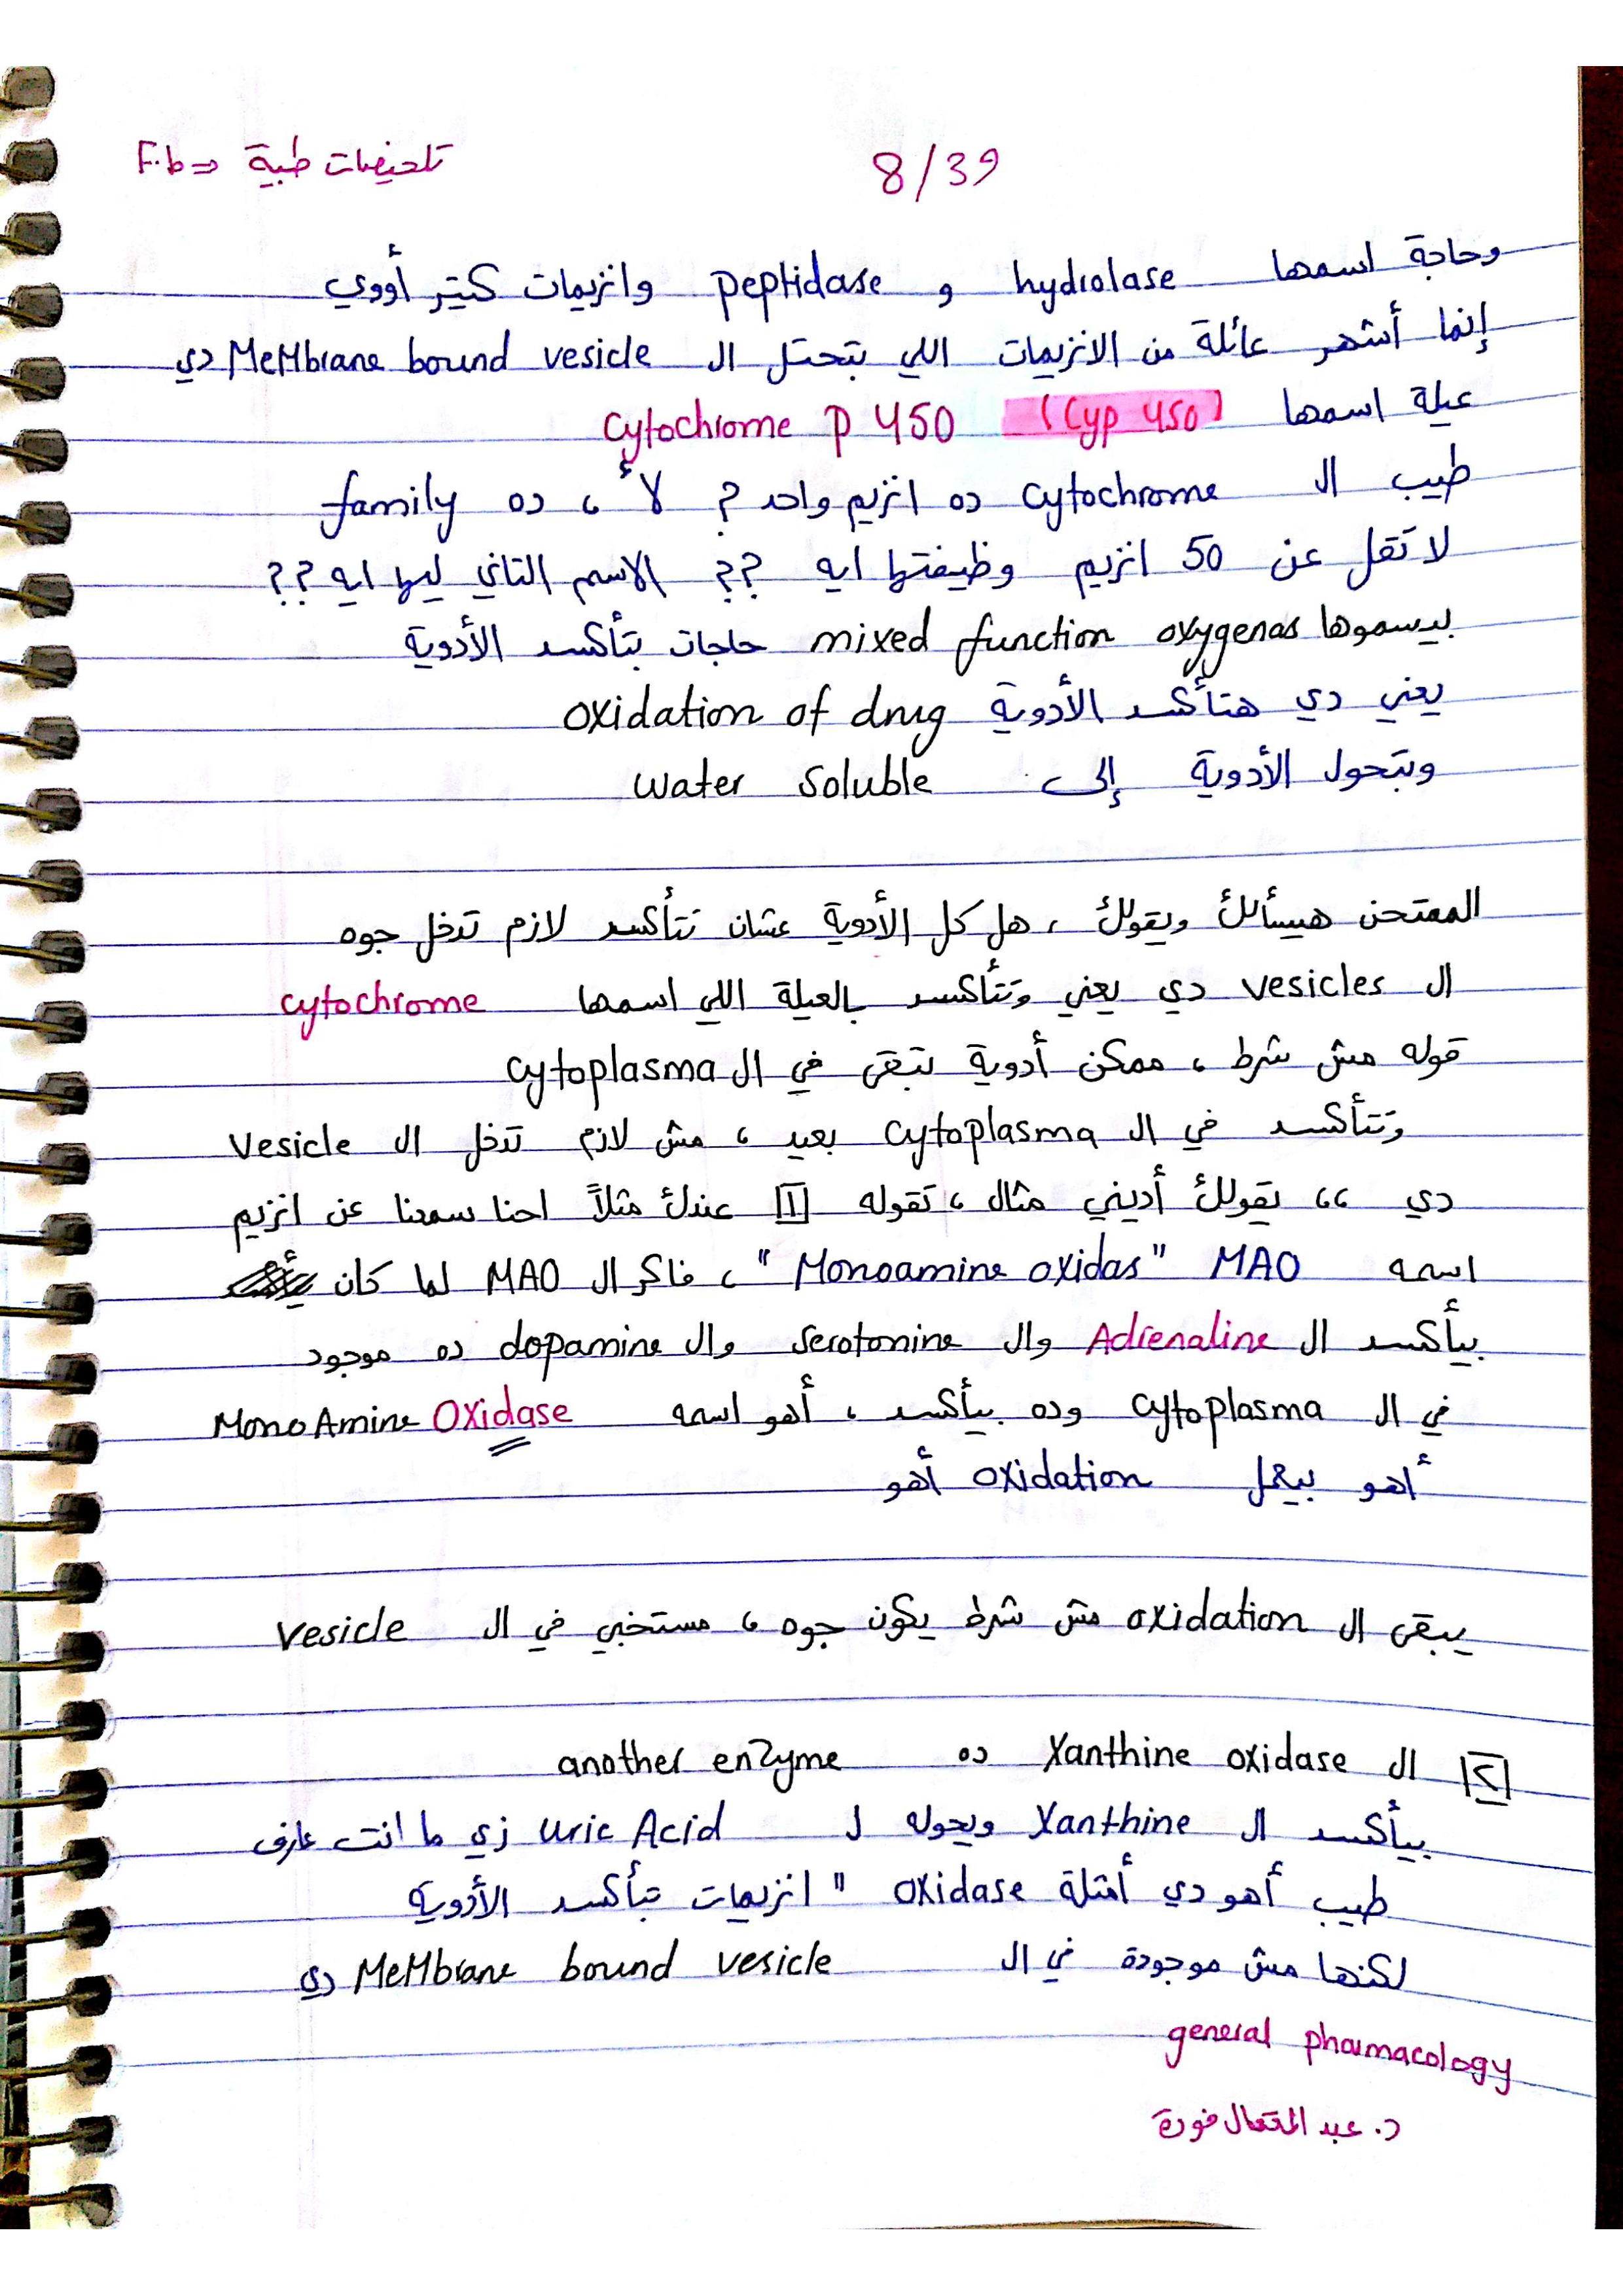 تلخيصات طبية <= F.b
8/39
وحاجة اسمها hydrolase و peptidase وانزيمات كتير أووي
إنما أشهر عائلة من الانزيمات اللي بتحتل ال MeMbrane bound vesicle دي
عيلة اسمها (Cyp 450) Cytochrome P 450
طيب ال Cytochrome ده انزيم واحد ؟ لأ ، ده family
لا تقل عن 50 انزيم وظيفتها ايه ؟؟ الاسم التاني ليها ايه ؟؟
بيسموها mixed function oxygenas حاجات بتأكسد الأدوية
يعني دي هتأكسد الأدوية oxidation of drug
وبتحول الأدوية إلى water soluble
الممتحن هيسألك ويقولك ، هل كل الأدوية عشان تتأكسد لازم تدخل جوه
ال vesicles دي يعني وتتأكسد بالعيلة اللي اسمها cytochrome
قوله مش شرط ، ممكن أدوية تبقى في ال cytoplasma
وتتأكسد في ال cytoplasma بعيد ، مش لازم تدخل ال vesicle
دي ،، يقولك أديني مثال ، تقوله [1] عندك مثلاً احنا سمعنا عن انزيم
اسمه MAO "Monoamine oxidas" ، فاكر ال MAO لما كان
بيأكسد ال Adrenaline وال serotonine وال dopamine ده موجود
في ال cytoplasma وده بيأكسد ، أهو اسمه MonoAmine Oxidase
أهو بيعمل oxidation أهو
يبقى ال oxidation مش شرط يكون جوه ، مستخبي في ال vesicle
[2] ال Xanthine oxidase ده another enzyme
بيأكسد ال Xanthine ويحوله ل Uric Acid زي ما انت عارف
طيب أهو دي أمثلة oxidase " انزيمات تبأكسد الأدوية
لكنها مش موجودة في ال MeMbrane bound vesicle دي
general pharmacology
د. عبد المتعال فودة